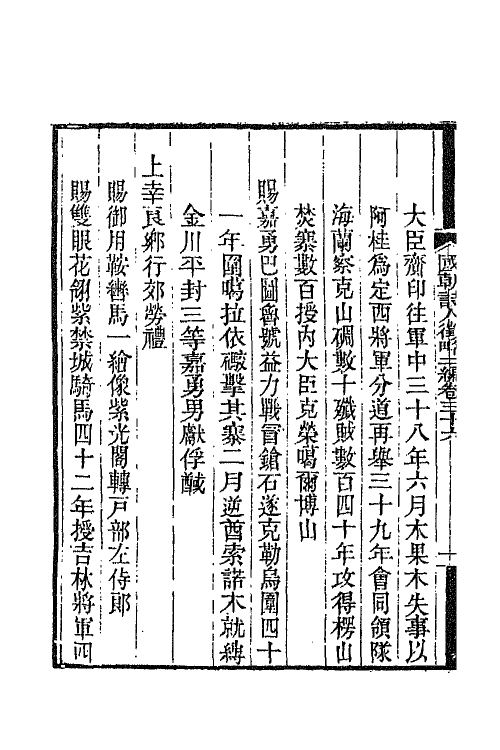 國朝詩人徵略二編卷三十六
大臣齎印往軍中三十八年六月木果木失事以
阿桂爲定西將軍分道再舉三十九年會同領隊
海蘭察克山碉數十殲賊數百四十年攻得楞山
焚寨數百授內大臣克榮噶爾博山
賜嘉勇巴圖魯號益力戰冒鎗石遂克勒烏圍四十
一年圍噶拉依礮擊其寨二月逆酋索諾木就縛
金川平封三等嘉勇男獻俘馘
上幸良鄉行郊勞禮
賜御用鞍轡馬一繪像紫光閣轉戸部左侍郎
賜雙眼花翎紫禁城騎馬四十二年授吉林將軍四